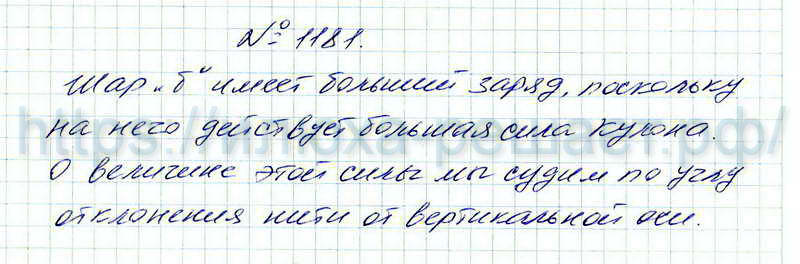 № 1181.
Шар „б“ имеет больший заряд, поскольку
на него действует большая сила Кулона.
О величине этой силы мы судим по углу
отклонения нити от вертикальной оси.